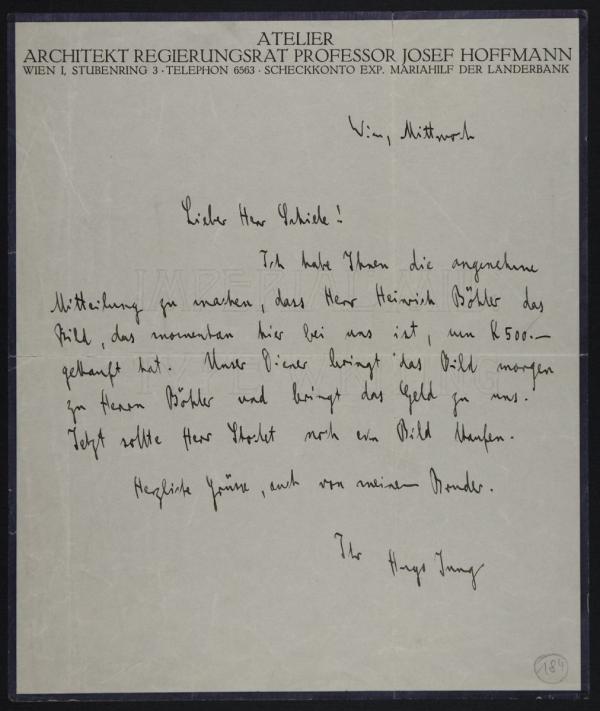 ATELIER
ARCHITEKT REGIERUNGSRAT PROFESSOR JOSEF HOFFMANN
WIEN I, STUBENRING 3 · TELEPHON 6563 · SCHECKKONTO EXP. MARIAHILF DER LÄNDERBANK
Wien, Mittwoch
Lieber Herr Schiele!
Ich habe Ihnen die angenehme
Mitteilung zu machen, dass Herr Heinrich Böhler das
Bild, das momentan hier bei uns ist, um K 500.—
gekauft hat. Unser Diener bringt das Bild morgen
zu Herrn Böhler und bringt das Geld zu uns.
Jetzt sollte Herr Stoclet noch ein Bild kaufen.
Herzliche Grüsse, auch von meinem Bruder.
Ihr Hugo Jung
184